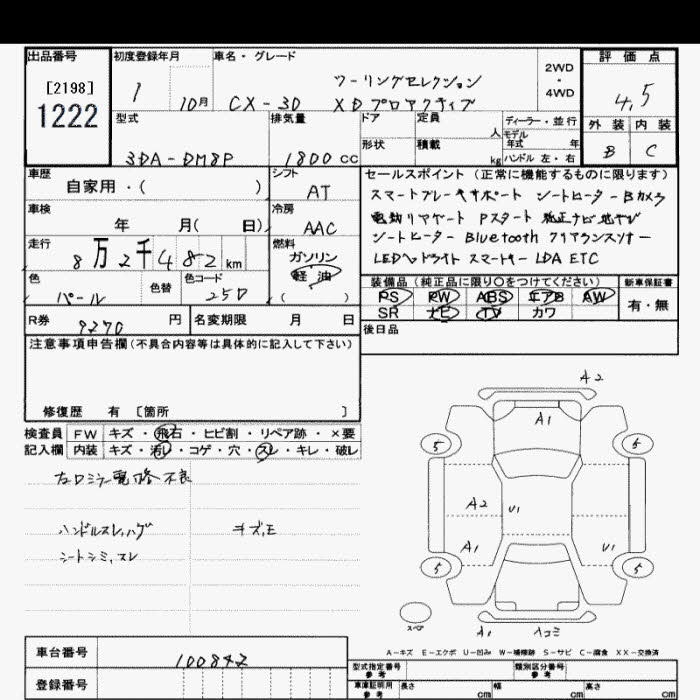 出品番号
[2198]
1222
初度登録年月
1 10月
車名・グレード
ツーリングセレクション
CX-30 XDプロアクティブ
2WD
・
4WD
評価点
4.5
外装 内装
B C
型式
3DA-DM8P
排気量
1800 cc
ドア
定員
人
形状
積載
kg
ディーラー・並行
モデル
年式 年
ハンドル 左・右
車歴
自家用・( )
車検
年 月( 日)
走行
8万2千482 km
色
パール
色替
色コード
25D
シフト
AT
冷房
AAC
燃料
ガソリン
軽油
( )
セールスポイント(正常に機能するものに限ります)
スマートブレーキサポート シートヒーター Bカメラ
電動リアゲート Pスタート 純正ナビ地デジ
シートヒーター Bluetooth クリアランスソナー
LEDヘッドライト スマートキー LDA ETC
装備品(純正品に限り○をつけてください)
PS PW ABS エアB AW
SR ナビ TV カワ
新車保証書
有・無
後日品
R券
9270 円
名変期限 月 日
注意事項申告欄(不具合内容等は具体的に記入して下さい)
修復歴 有 [箇所 ]
検査員
記入欄
FW キズ・飛石・ヒビ割・リペア跡・×要
内装 キズ・汚レ・コゲ・穴・スレ・キレ・破レ
左ドミラー電格不良
ハンドルスレ,ハゲ キズ,エ
シートシミ,スレ
A2
A1
5 5
A2 U1
A1 U1
5 5
スペア
A1 Aコミ
A-キズ E-エクボ U-凹み W-補修跡 S-サビ C-腐食 XX-交換済
車台番号
100842
登録番号
型式指定番号
参考
類別区分番号
参考
車庫証明用
参考
長さ cm
幅 cm
高さ cm